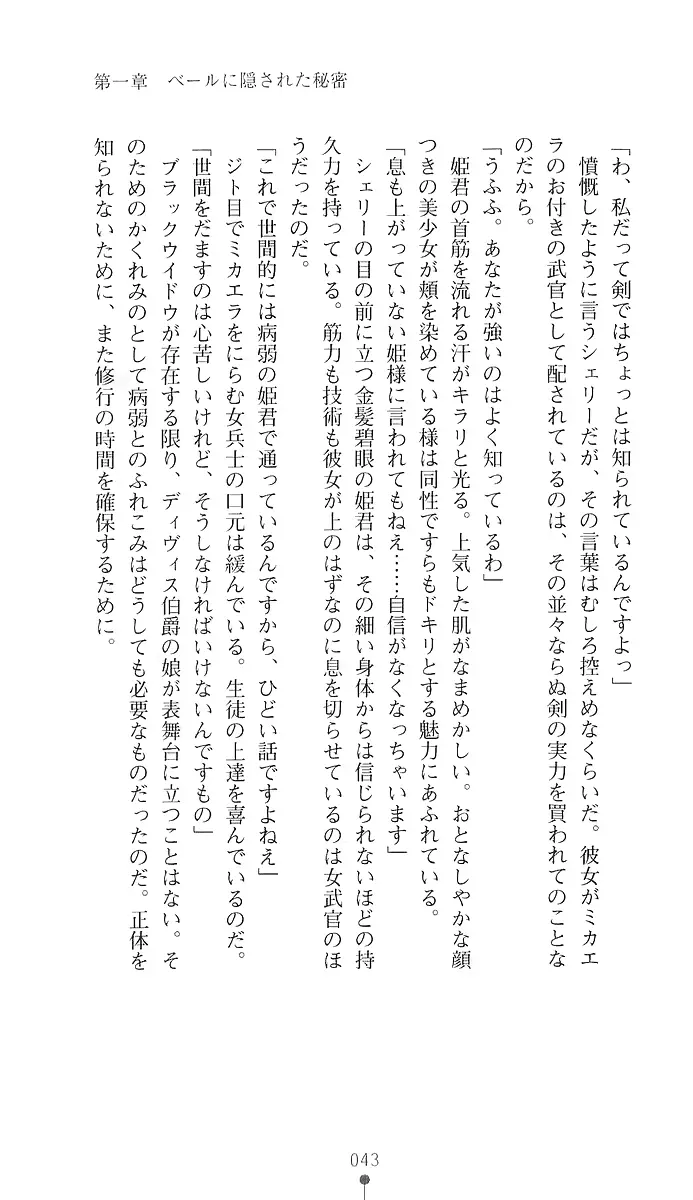 第一章　ベールに隠された秘密
「わ、私だって剣ではちょっとは知られているんですよっ」
　憤慨したように言うシェリーだが、その言葉はむしろ控えめなくらいだ。彼女がミカエ
ラのお付きの武官として配されているのは、その並々ならぬ剣の実力を買われてのことな
のだから。
「うふふ。あなたが強いのはよく知っているわ」
　姫君の首筋を流れる汗がキラリと光る。上気した肌がなまめかしい。おとなしやかな顔
つきの美少女が頬を染めている様は同性ですらもドキリとする魅力にあふれている。
「息も上がっていない姫様に言われてもねえ……自信がなくなっちゃいます」
　シェリーの目の前に立つ金髪碧眼の姫君は、その細い身体からは信じられないほどの持
久力を持っている。筋力も技術も彼女が上のはずなのに息を切らせているのは女武官のほ
うだったのだ。
「これで世間的には病弱の姫君で通っているんですから、ひどい話ですよねえ」
　ジト目でミカエラをにらむ女兵士の口元は緩んでいる。生徒の上達を喜んでいるのだ。
「世間をだますのは心苦しいけれど、そうしなければいけないんですもの」
　ブラックウイドウが存在する限り、ディヴィス伯爵の娘が表舞台に立つことはない。そ
のためのかくれみのとして病弱とのふれこみはどうしても必要なものだったのだ。正体を
知られないために、また修行の時間を確保するために。
043